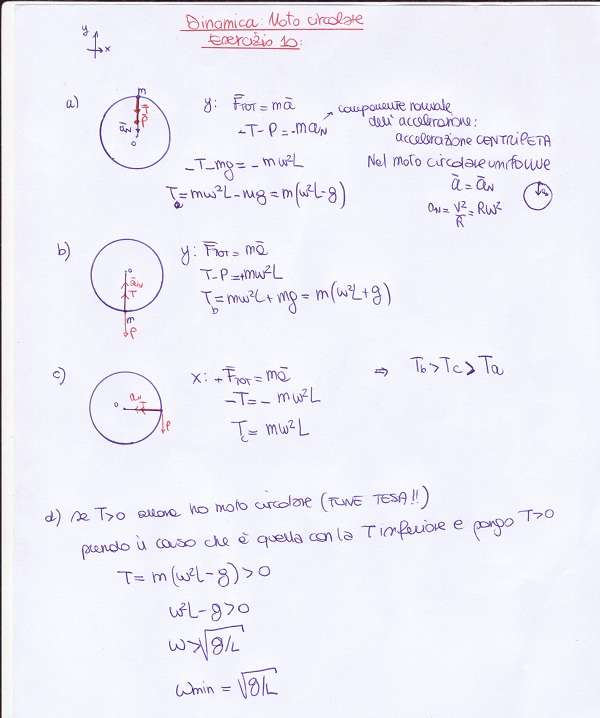 Dinamica: Moto circolare
Esercizio 10:
y
x
a)
m
T
P
a̅N
o
y: F̅TOT = ma̅
-T-P = -maN
componente normale
dell'accelerazione:
accelerazione CENTRIPETA
-T-mg = -mω²L
Ta = mω²L-mg = m(ω²L-g)
Nel moto circolare uniforme
a̅ = a̅N
aN = V²/R = Rω²
b)
o
a̅N
T
m
P
y: F̅TOT = ma̅
T-P = +mω²L
Tb = mω²L + mg = m(ω²L+g)
c)
o
aN
T
P
x: + F̅TOT = ma̅
-T = - mω²L
Tc = mω²L
⇒ Tb > Tc > Ta
d) se T>0 allora ho moto circolare (FUNE TESA!!)
prendo il caso che è quella con la T inferiore e pongo T>0
T = m(ω²L-g) > 0
ω²L-g>0
ω>√g/L
ωmin = √g/L